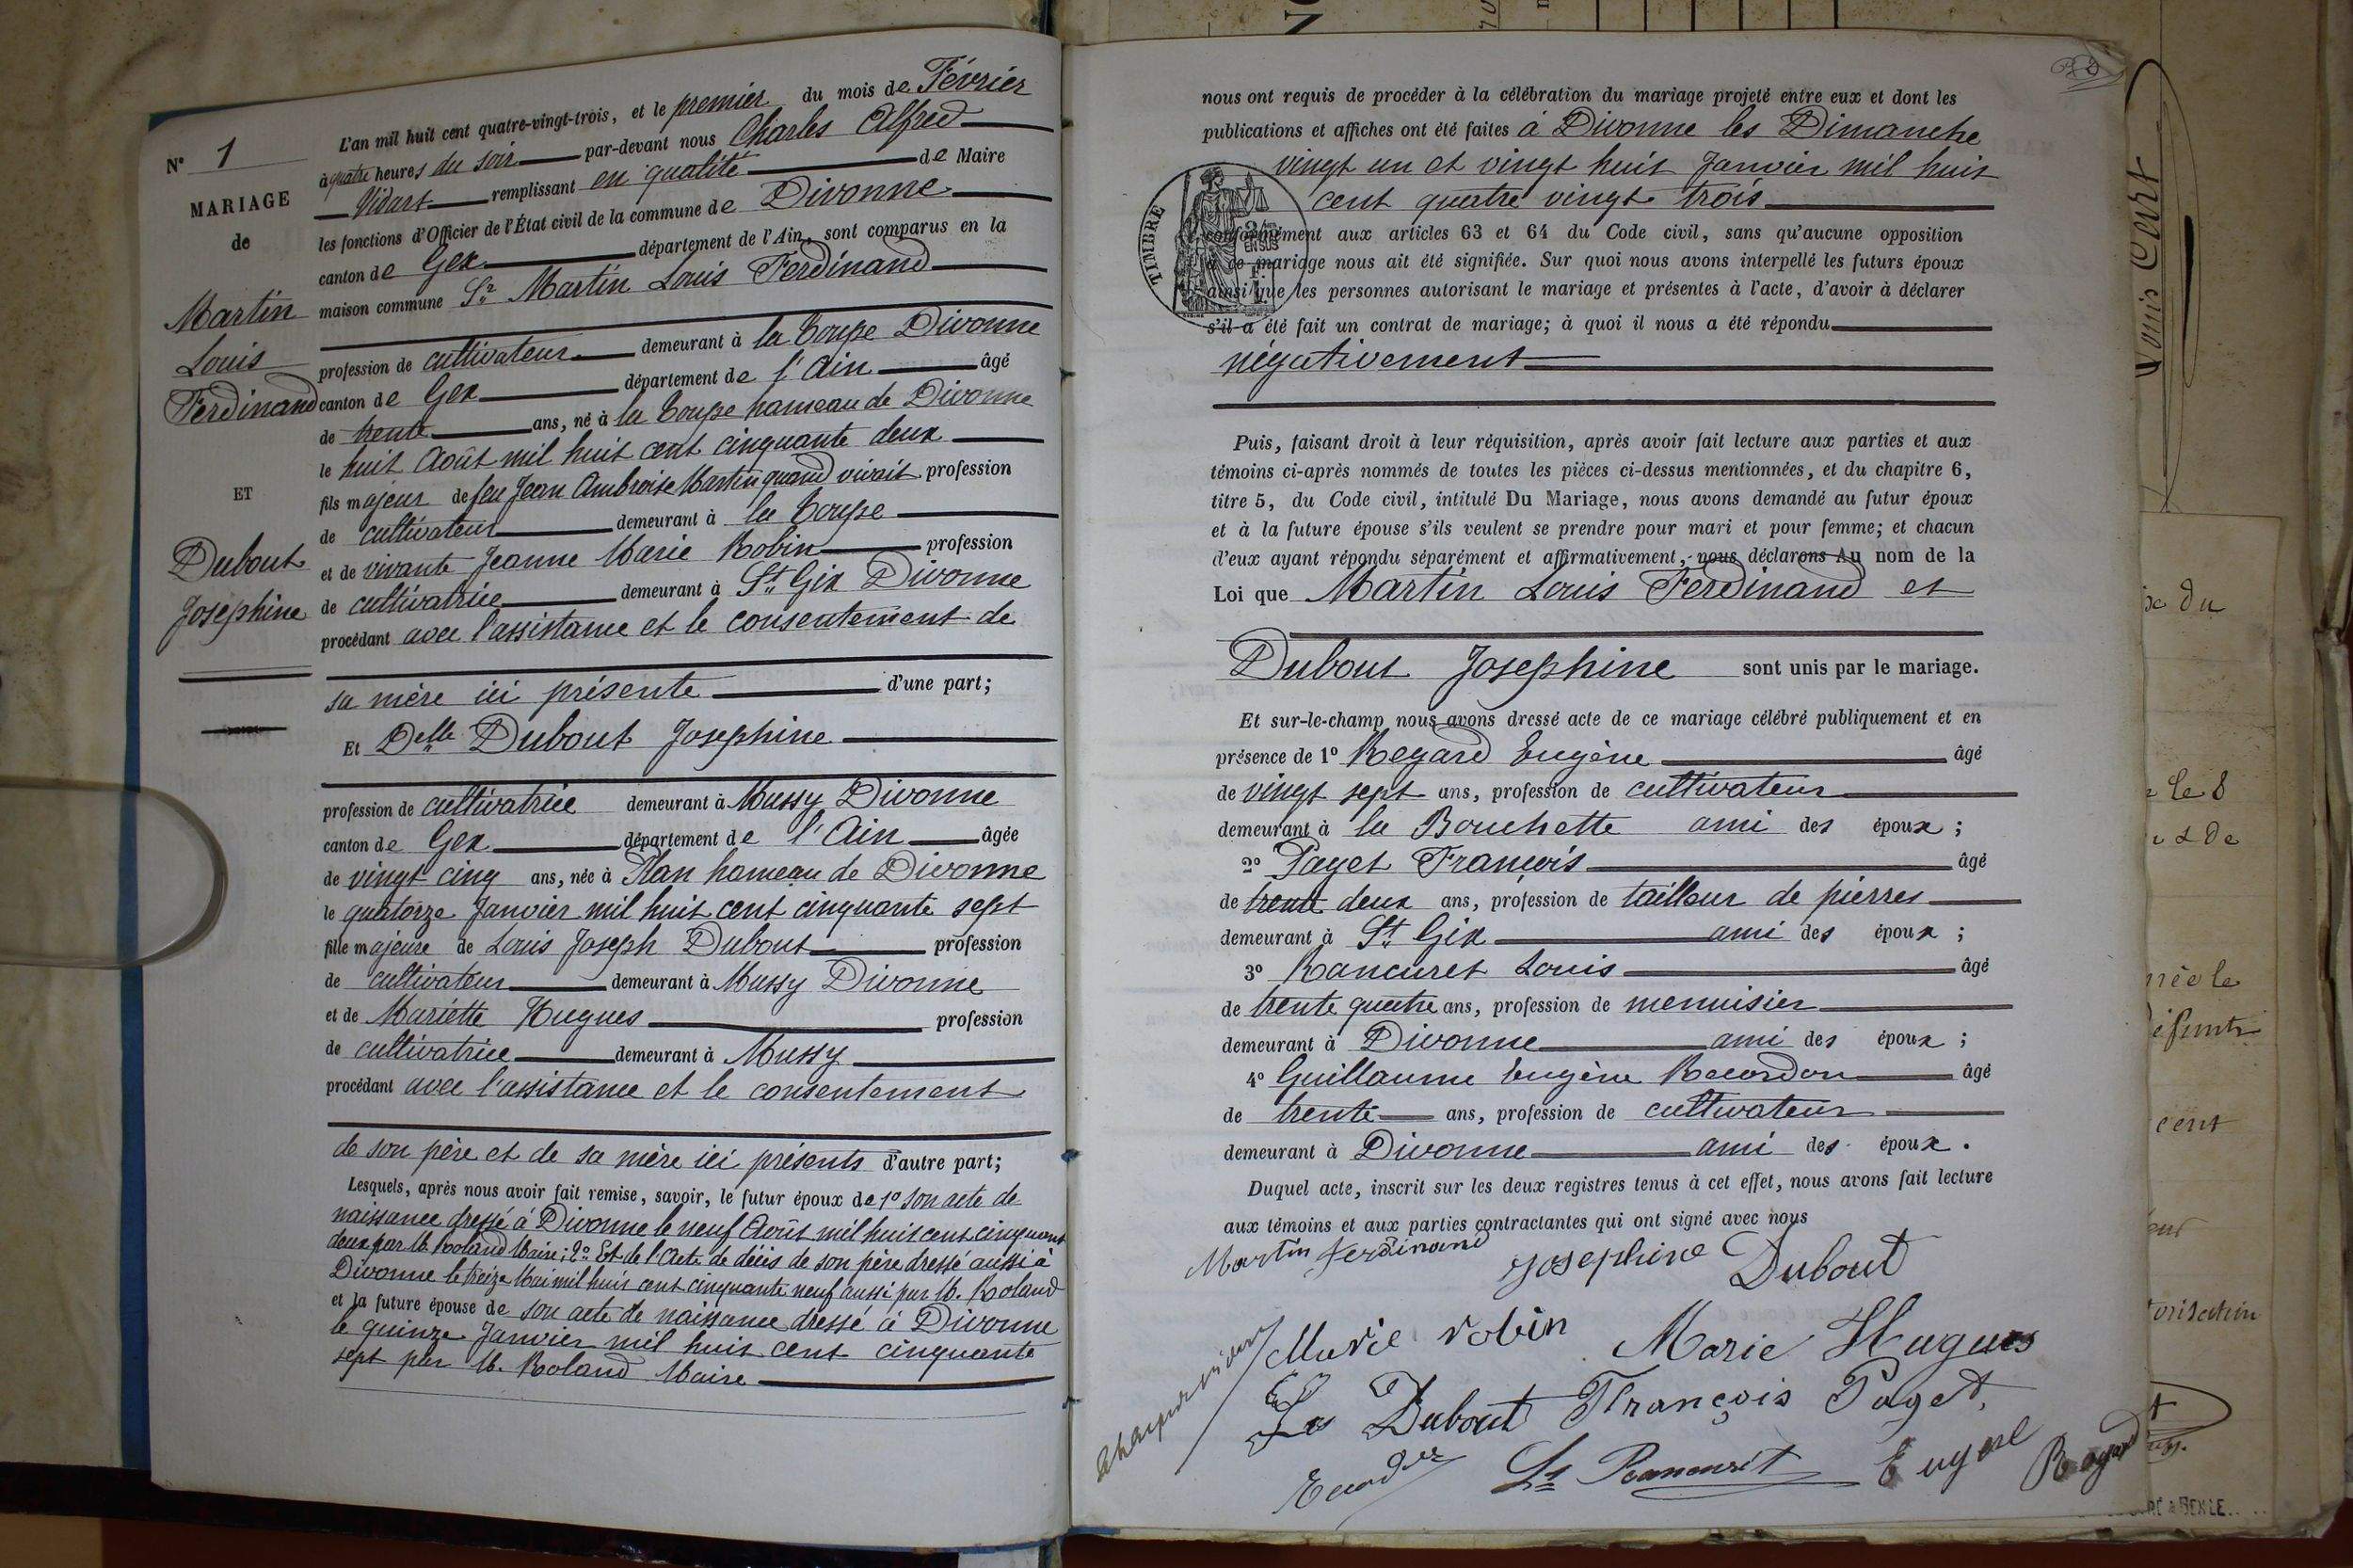 N° 1
MARIAGE
de
Martin
Louis
Ferdinand
ET
Dubout
Josephine
L'an mil huit cent quatre-vingt-trois, et le premier du mois de Février
à quatre heures du soir par-devant nous Charles Alfred
Vidart remplissant en qualité de Maire
les fonctions d'Officier de l'État civil de la commune de Divonne
canton de Gex département de l'Ain, sont comparus en la
maison commune Sr Martin Louis Ferdinand
profession de cultivateur demeurant à la Coupe Divonne
canton de Gex département de l'Ain âgé
de trente ans, né à la Coupe hameau de Divonne
le huit Août mil huit cent cinquante deux
fils majeur de feu Jean Ambroise Martin quand vivait profession
de cultivateur demeurant à la Coupe
et de vivante Jeanne Marie Robin profession
de cultivatrice demeurant à St Gix Divonne
procédant avec l'assistance et le consentement de
sa mère ici présente d'une part;
Et Delle Dubout Josephine
profession de cultivatrice demeurant à Mussy Divonne
canton de Gex département de l'Ain âgée
de vingt cinq ans, née à Plan hameau de Divonne
le quatorze Janvier mil huit cent cinquante sept
fille majeure de Louis Joseph Dubout profession
de cultivateur demeurant à Mussy Divonne
et de Mariette Hugues profession
de cultivatrice demeurant à Mussy
procédant avec l'assistance et le consentement
de son père et de sa mère ici présents d'autre part;
Lesquels, après nous avoir fait remise, savoir, le futur époux de 1° son acte de
naissance dressé à Divonne le neuf Août mil huit cent cinquante
deux par M. Roland Maire; 2° Et de l'Acte de décès de son père dressé aussi à
Divonne le treize Mai mil huit cent cinquante neuf aussi par M. Roland
et la future épouse de son acte de naissance dressé à Divonne
le quinze Janvier mil huit cent cinquante
sept par M. Roland Maire
nous ont requis de procéder à la célébration du mariage projeté entre eux et dont les
publications et affiches ont été faites à Divonne les Dimanche
vingt un et vingt huit Janvier mil huit
cent quatre vingt trois
TIMBRE
2/10
EN SUS
conformément aux articles 63 et 64 du Code civil, sans qu'aucune opposition
à ce mariage nous ait été signifiée. Sur quoi nous avons interpellé les futurs époux
ainsi que les personnes autorisant le mariage et présentes à l'acte, d'avoir à déclarer
s'il a été fait un contrat de mariage; à quoi il nous a été répondu
négativement
Puis, faisant droit à leur réquisition, après avoir fait lecture aux parties et aux
témoins ci-après nommés de toutes les pièces ci-dessus mentionnées, et du chapitre 6,
titre 5, du Code civil, intitulé Du Mariage, nous avons demandé au futur époux
et à la future épouse s'ils veulent se prendre pour mari et pour femme; et chacun
d'eux ayant répondu séparément et affirmativement, nous déclarons Au nom de la
Loi que Martin Louis Ferdinand et
Dubout Josephine sont unis par le mariage.
Et sur-le-champ nous avons dressé acte de ce mariage célébré publiquement et en
présence de 1° Regard Eugène âgé
de vingt sept ans, profession de cultivateur
demeurant à la Bouchette ami des époux;
2° Paget François âgé
de trente deux ans, profession de tailleur de pierres
demeurant à St Gix ami des époux;
3° Rancuret Louis âgé
de trente quatre ans, profession de menuisier
demeurant à Divonne ami des époux;
4° Guillaume Eugène Recordon âgé
de trente ans, profession de cultivateur
demeurant à Divonne ami des époux.
Duquel acte, inscrit sur les deux registres tenus à cet effet, nous avons fait lecture
aux témoins et aux parties contractantes qui ont signé avec nous
Martin Ferdinand Josephine Dubout
Marie robin Marie Hugues
Ls Dubout François Paget,
Ls Rancuret Eugene Regard
Louis Cart
du
le 8
de